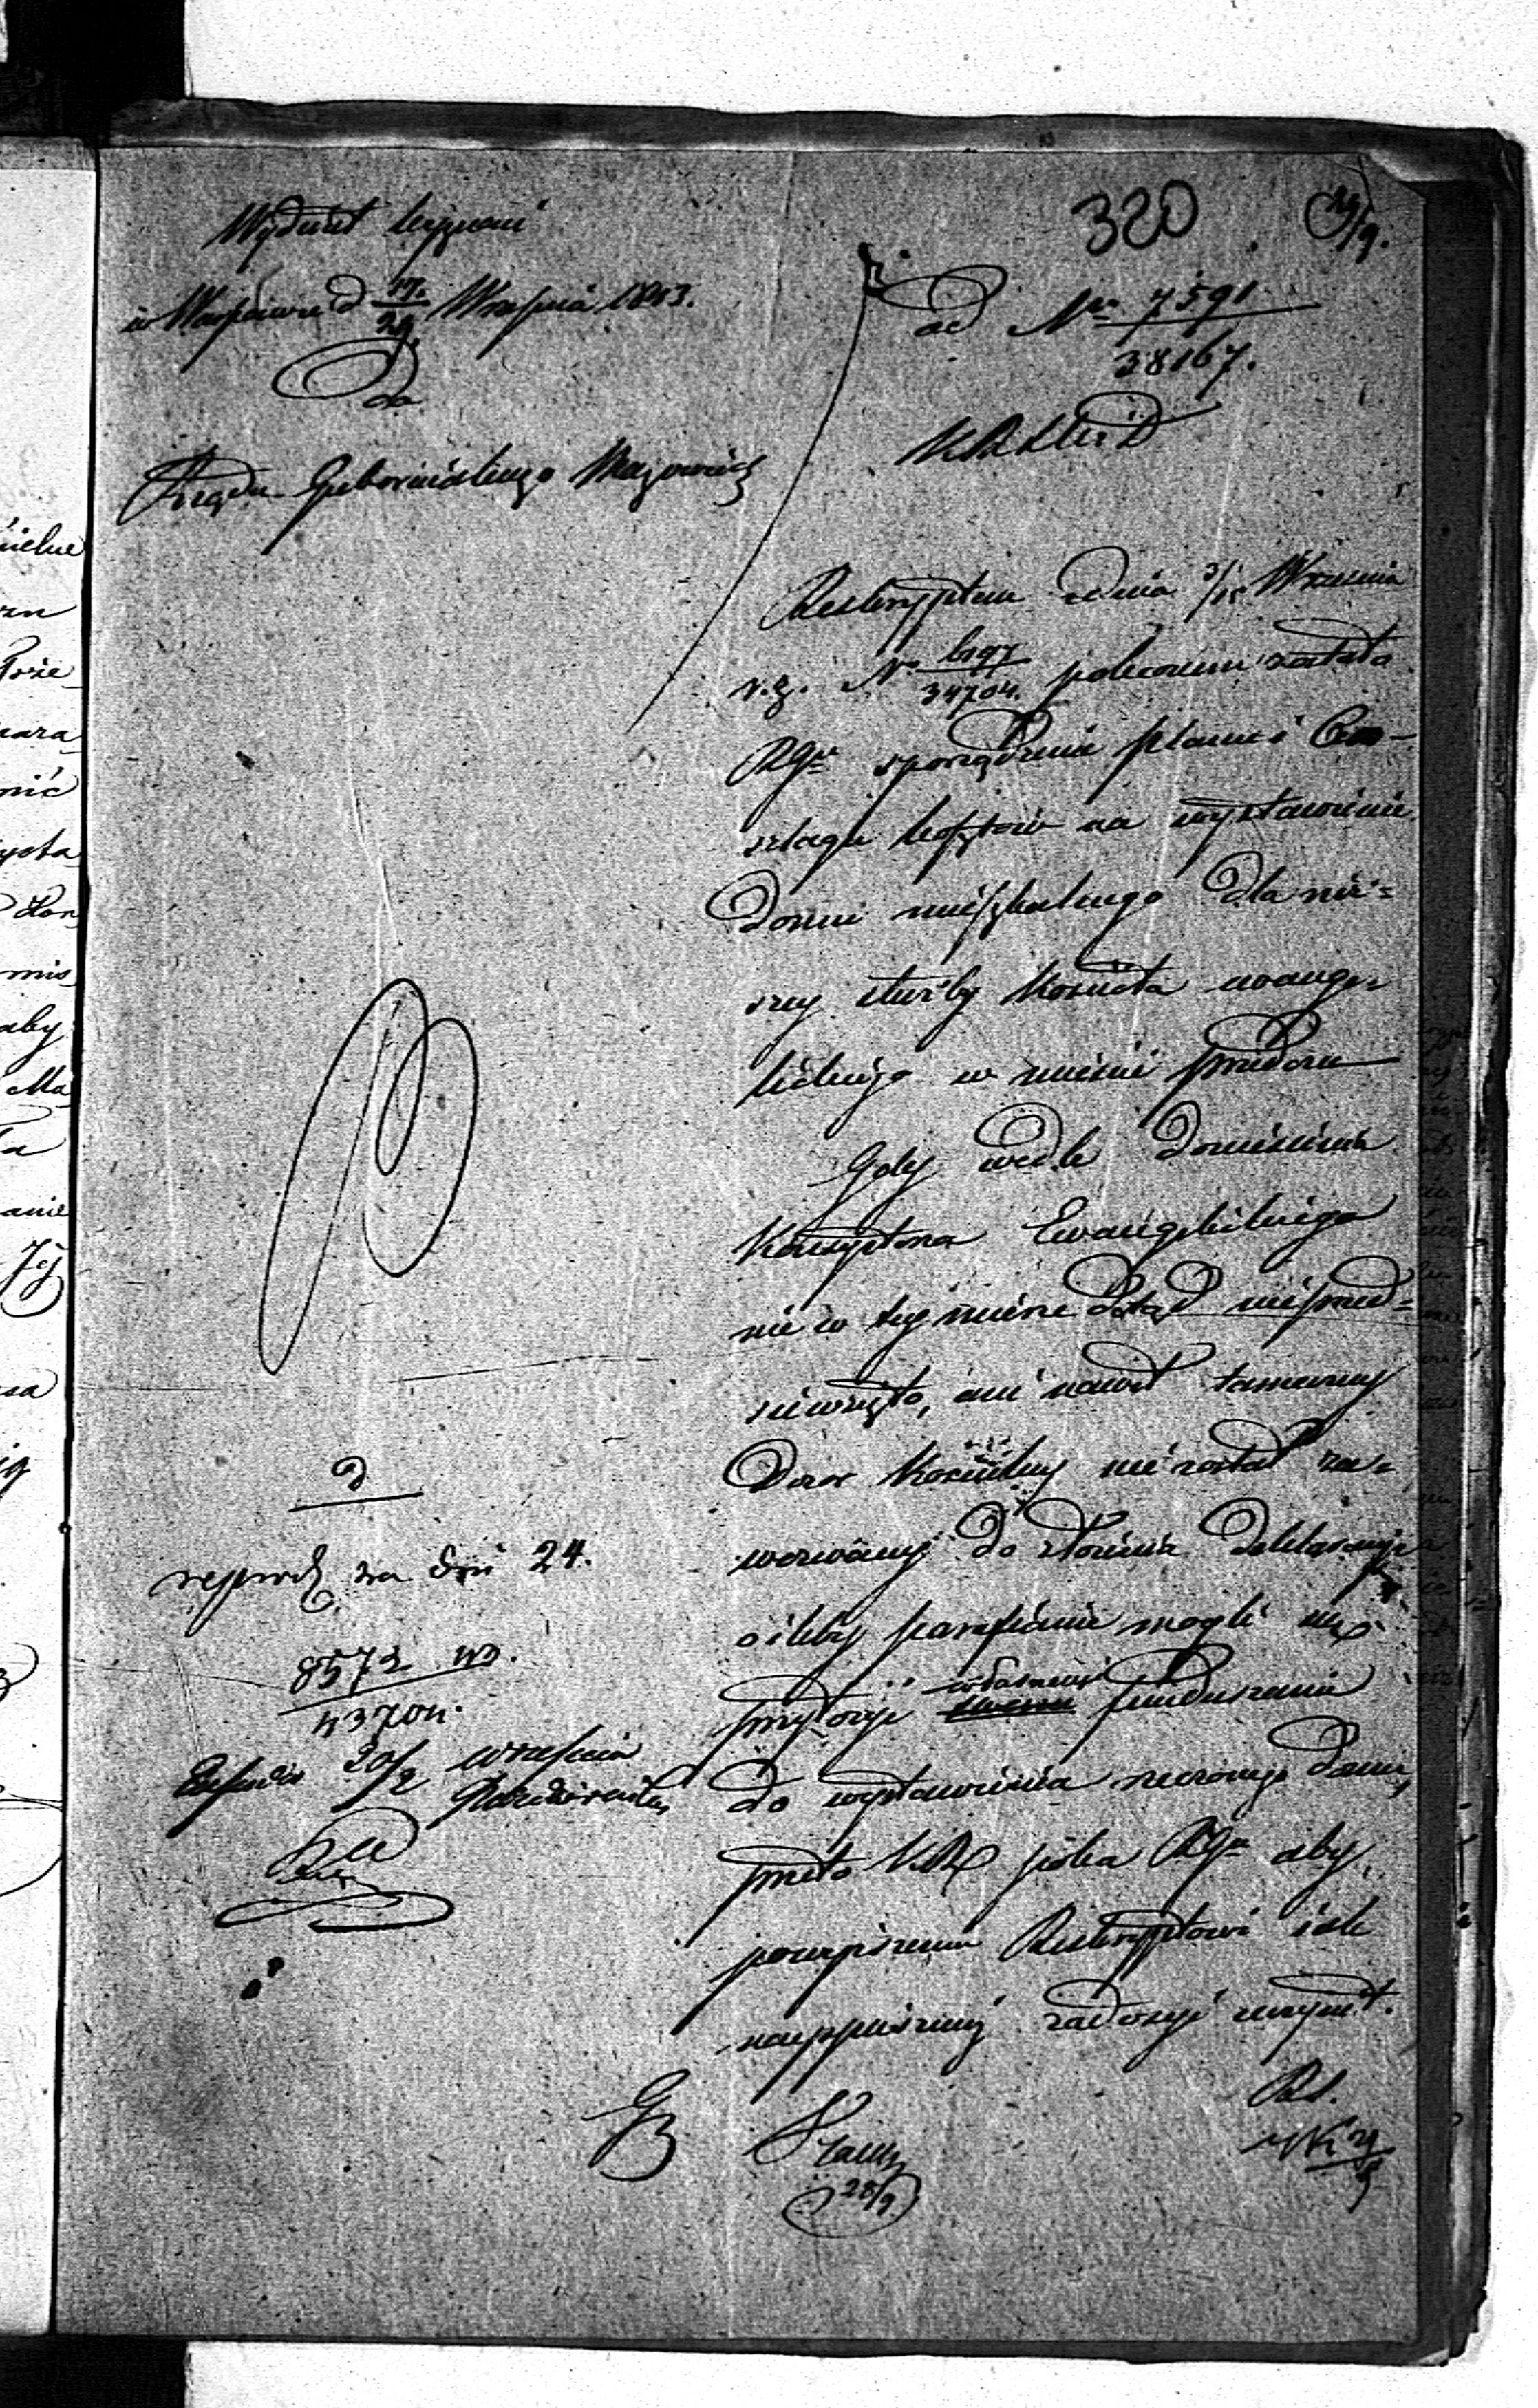 320
29/9.
Wydział Wyznań
w Warszawie d 17/29 Września 1843.
Do
Rządu Gubernialnego Mazowieck
ad Nr 7591
38167.
Reskryptem z dnia 3/15 Września
r.z. No 6197/34704. poleconem zostało
RGu sporządzenie planu i
szlagu kosztów na wystawienie
Domu mieszkalnego dla niż=
szey służby Kościoła ewange=
lickiego w mieście
Gdy wedle Doniesienia
Konsystorza Ewangelickiego
nic w tey mierze dotąd nieprzed=
siewzięto, ani nawet tameczny
Dozor Kościelny nie został za=
wezwany do złożenia deklaracyi
o ileby parafianie mogli się
przyłożyć własnemi funduszami
do wystawienia rzeczonego domu,
przeto KR poleca RGu aby
powyższemu Reskryptowi jak
nayspieszniej zadosyć uczynił.
D
na dni 24.
8572 wo.
43704.
30/2 Września
Października
28/9